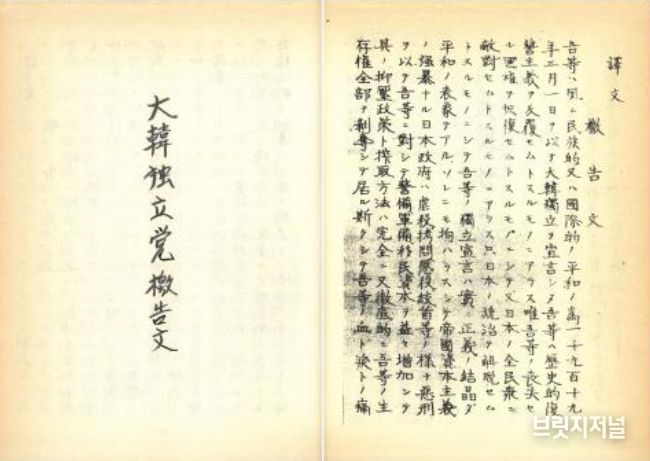 大韓独立党檄告文
譯文
檄告文
吾等ハ夙ニ民族的又ハ國際的ノ平和ノ爲一千九百十九
年三月一日ヲ以テ大韓獨立ヲ宣言シタ吾等ハ歴史的復
讐主義ヲ反覆セムトスルモノニアラス唯吾等ノ喪失セ
ヲ恢復セムトスルモノニシテ又日本ノ全民衆ニ
敵對セムトスルモノニアラス只日本ノ統治ヲ解脱セム
トスルモノニシテ吾等ノ獨立宣言ハ實ニ正義ノ結晶ダ
平和ノ表象テアルソレニモ拘ハラスシテ帝國資本主義
ノ強暴ナル日本政府ハ虐殺拷問懲役絞首等ノ様ナ惡刑
ヲ以テ吾等ニ對シテ警備軍備移民資本ヲ益々増加シテ
其ノ抑壓政策ト搾取方法ハ完全ニ又徹底的ニ吾等ノ生
存權全部ヲ剥奪シテ居ル斯クシテ吾等ノ血ト涙トノ痛
브릿지저널